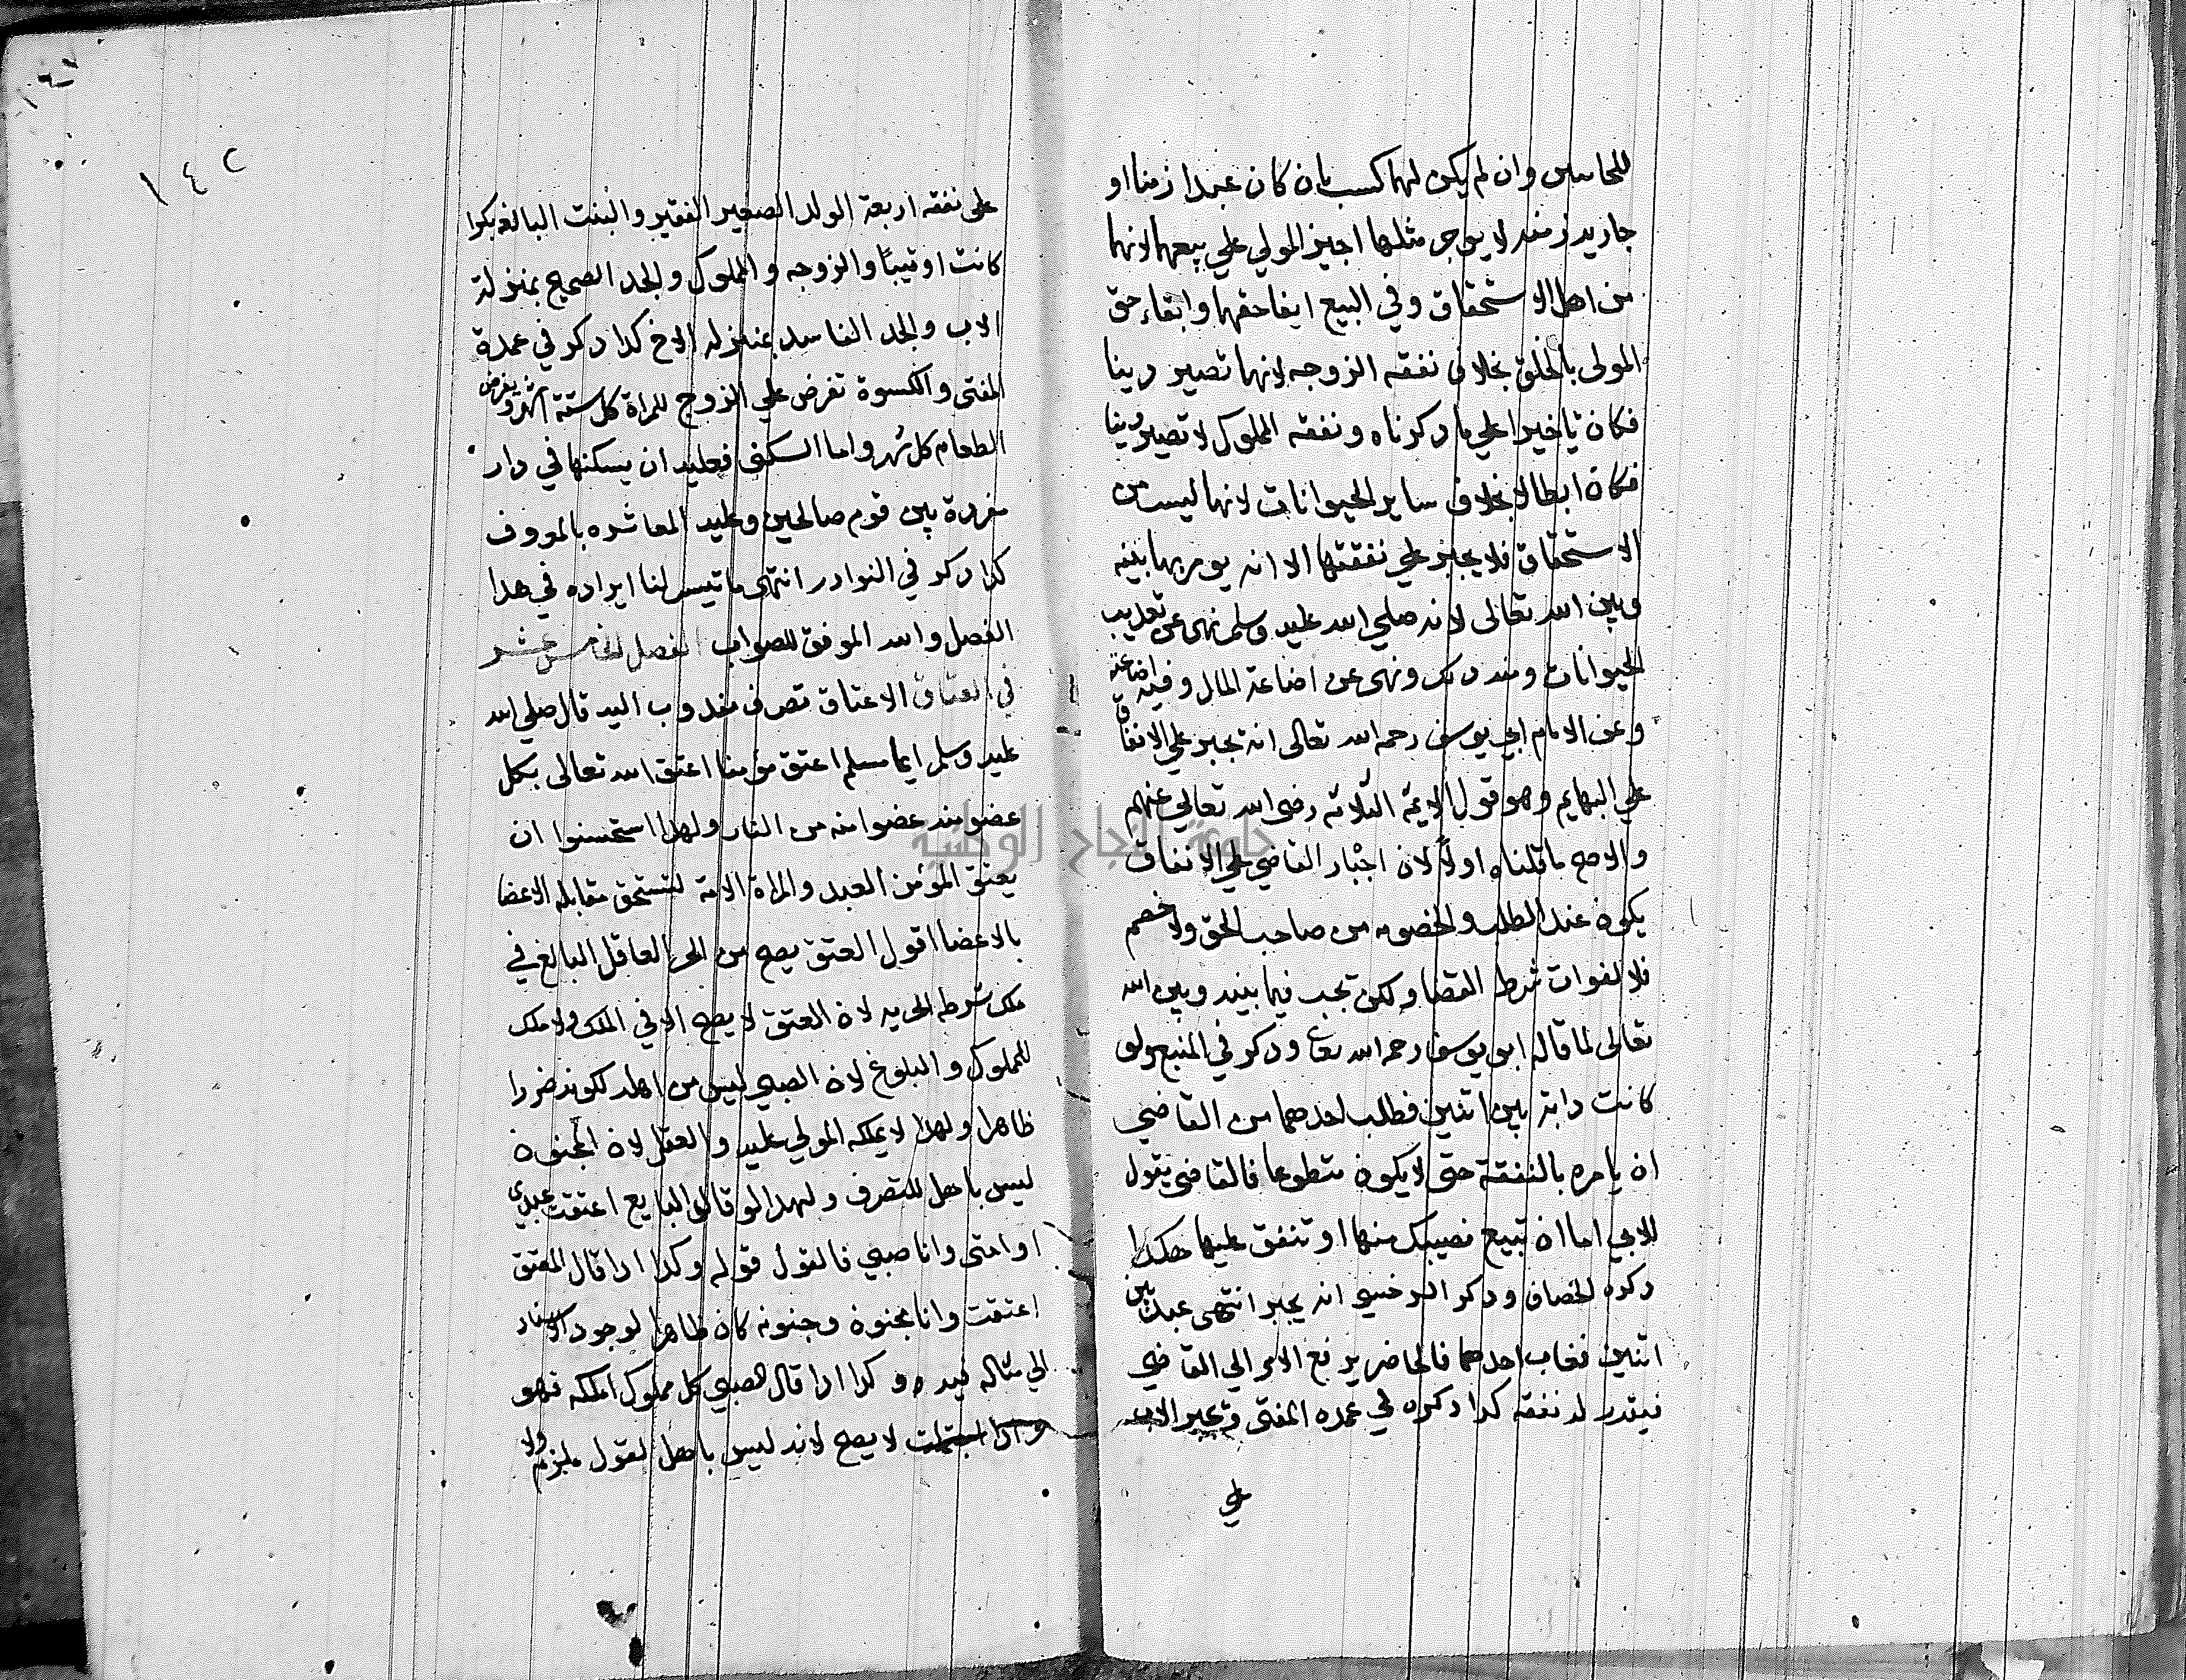 للجانبين وان لم يكن لهما كسب بان كان عبدا زمنا او
جارية زمنه لا يوجر مثلها اجبر المولي علي بيعهما لانهما
من اهل الاستحقاق وفي البيع ايفا حقهما وابقاء حق
المولى بالخلق بخلاف نفقه الزوجه لانها تصير دينا
فكان تاخيرا علي ما دكرناه ونفقه المملوك لا تصير دينا
فكان ابطالا بخلاف ساير الحيوانات لانها ليست من
الاستحقاق فلا يجبر علي نفقتها الا انه يومر بها بينه
وبين الله تعالى لانه صلي الله عليه وسلم نهى عن تعديب
الحيوانات ومنه دلك ونهى عن اضاعة المال وفيه اضاعته
وعن الامام ابي يوسف رحمه الله تعالى انه يجبر علي الانفاق
علي البهايم وهو قول الايمة الثلاثه رضى الله تعالي عنهم
والاصح ما قلناه اولاً لان اجبار القاضي علي الانفاق
يكون عند الطلب والخصومه من صاحب الحق ولا خصم
فلا لفوات شرط القضا ولكن تجب فيما بينه وبين الله
تعالى لما قاله ابو يوسف رحمه الله تعا ودكر في المنبع ولو
كانت دابة بين اثنين فطلب احدهما من القاضي
ان يامره بالنفقة حتى لا يكون متطوعا فالقاضي يقول
للابي اما ان تبيع نصيبك منها او تنفق عليها هكدا
دكره الخصاف ودكر السرخسي انه يجبر انتهى عبد بين
اثنين فغاب احدهما فالحاضر يرفع الامر الي القاضي
فيقدر له نفقه كدا دكره في عمده المفتى ويجبر الاب
علي
١٤٢
على نفقه اربعة الولد الصغير الفقير والبنت البالغه بكرا
كانت او ثيبًا والزوجه والمملوك والجد الصحيح بمنزلة
الاب والجد الفاسد بمنزله الاخ كدا دكر في عمدة
المفتى والكسوة تفرض علي الزوج للمراة كل ستة اشهر ويفرض
الطعام كل شهر واما السكنى فعليه ان يسكنها في دار
مفردة بين قوم صالحين وعليه المعاشره بالمعروف
كدا دكر في النوادر انتهى ما تيسر لنا ايراده في هدا
الفصل والله الموفق للصواب الفصل الخامس عشر
في العتاق الاعتاق تصرف مندوب اليه قال صلي الله
عليه وسلم ايما مسلم اعتق مؤمنا اعتق الله تعالى بكل
عضو منه عضوا منه من النار ولهدا استحسنوا ان
يعتق المؤمن العبد والمراة الامة لتستحق مقابله الاعضا
بالاعضا اقول العتق يصح من الحر العاقل البالغ في
ملكه شرط الحريه لان العتق لا يصح الا في الملك ولا ملك
للمملوك والبلوغ لان الصبي ليس من اهله لكونه ضررا
ظاهرا ولهدا لا يملكه المولي عليه والعقل لان المجنون
ليس باهل للتصرف ولهدا لو قال البايع اعتقت عبدي
او امتى وانا صبي فالقول قوله وكدا ادا قال المعتق
اعتقت وانا مجنون وجنونه كان ظاهرا لوجود الاسناد
الي
وكدا ادا قال الصبي كل مملوك املكه فهو
لا يصح لانه ليس باهل لقول ملزم ولا
جامعة النجاح الوطنية